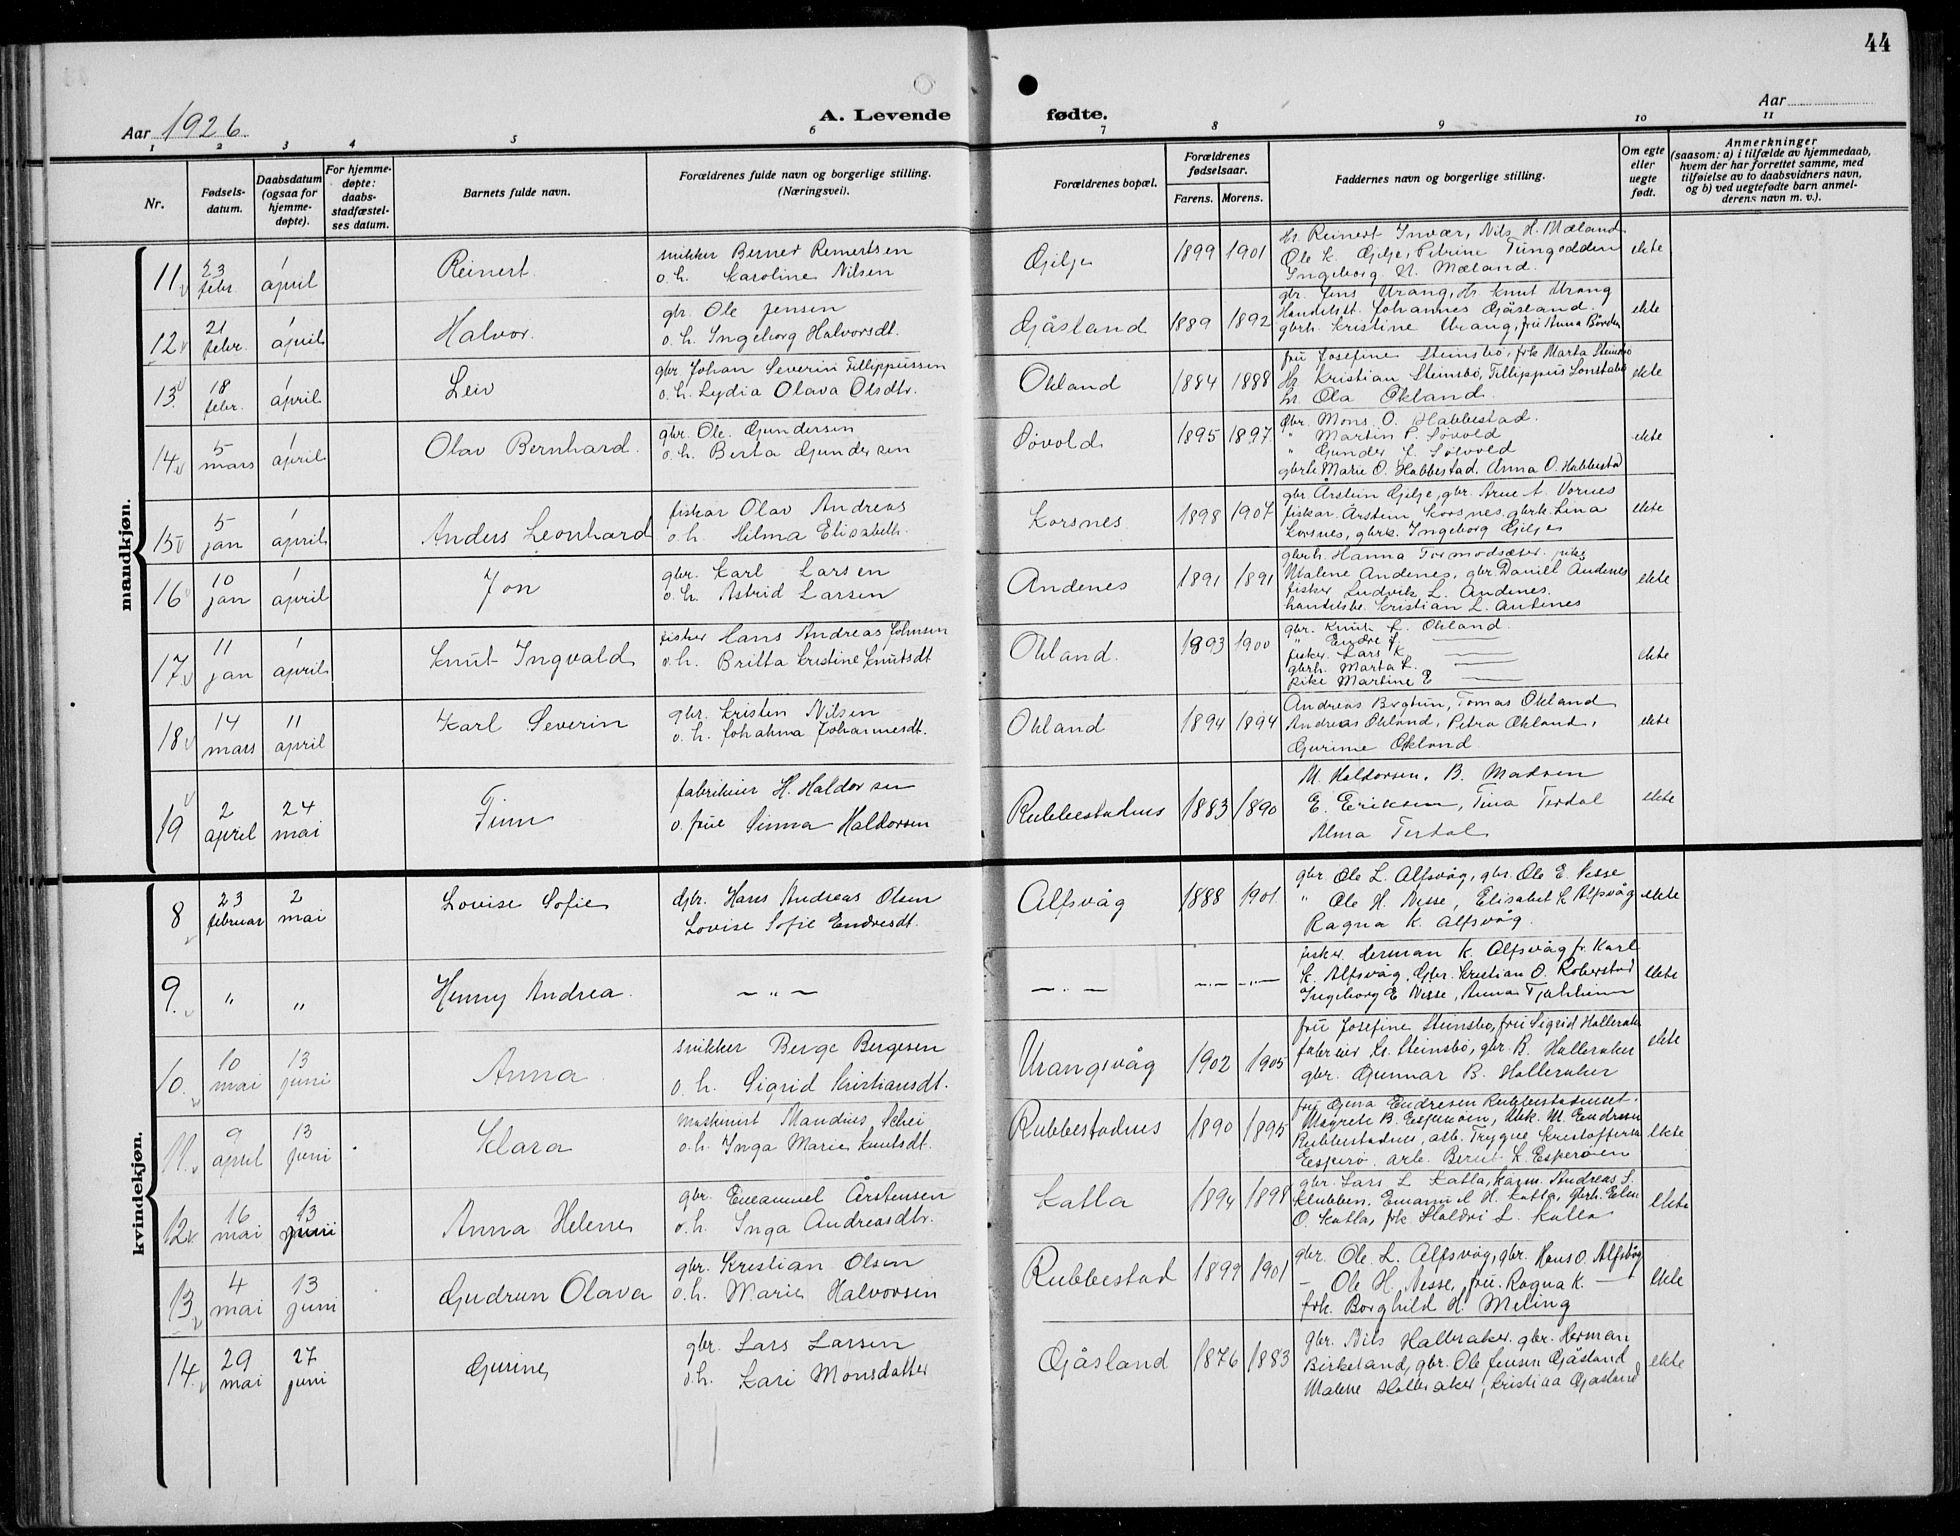 44
Aar 1926.
A. Levende fødte.
Aar
1 2 3 4 5 6 7 8 9 10 11
Nr.
Fødsels-
datum.
Daabsdatum
(ogsaa for
hjemme-
døpte).
For hjemme-
døpte:
daabs-
stadfæstel-
ses datum.
Barnets fulde navn.
Forældrenes fulde navn og borgerlige stilling.
(Næringsvei).
Forældrenes bopæl.
Forældrenes
fødselsaar.
Farens. Morens.
Faddernes navn og borgerlige stilling.
Om egte
eller
uegte
født.
Anmerkninger
(saasom: a) i tilfælde av hjemmedaab,
hvem der har forrettet samme, med
tilføielse av to daabsvidners navn,
og b) ved uegtefødte barn anmel-
derens navn m. v.).
mandkjøn.
11 23 febr. 1 april Reinert.
snikker Berner Reinertsen
o. h. Karoline Nilsen
Gilje 1899 1901
Hr. Reinert Invær, Nils H. Mæland
Ole K. Gilje, Petrine Tungodden
Ingeborg N. Mæland.
ekte
12 21 febr. 1 april Halvor.
gbr. Ole Jensen
o. h. Ingeborg Halvorsdt.
Gåsland 1889 1892
gbr. Jens Urang, Hr. Knut Urang
Handelsst. Johannes Gåsland.
gbrh. Kristine Urang, fru Anna
ekte
13. 18 febr. 1 april Leiv
gbr. Johan Severin Fillippussen
o. h. Lydia Olava Olsdtr.
Økland 1884 1888
fru Josefine Steinsbø, frk Marta Steinsbø
Hr. Kristian Steinsbø, Fillippus
hr. Ola Økland.
ekte
14 5 mars 1 april Olav Bernhard.
gbr. Ole Gundersen
o. h. Berta Gundersen
Søvold 1895 1897
Gbr. Mons O. Habbestad.
" Martin P. Søvold
" Gunder L. Søvold
gbrh. Marie O. Habbestad, Anna O. Habbestad
ekte
15 5 jan 1 april Anders Leonhard
fiskar Olav Andreas
o. h. Hilma Elisabeth.
Korsnes. 1898 1907
gbr Årstein Gilje, gbr. Arne A. Vornes
fiskar Årstein Korsnes, gbrk. Lina
Korsnes, gbrk. Ingeborg Gilje
ekte
16 10 jan 1 april Jon
gbr. Karl Larsen
o. h. Astrid Larsen
Andenes 1891 1891
gbrh. Hanna Tormodsæter. pike
Malene Andenes, gbr Daniel Andenes
fisker Ludvik L. Andenes.
handelsbe. Kristian L. Antenes
ekte
17 11 jan 1 april Knut Ingvald
fisker Hans Andreas Johnsen
o. h. Britta Kristine Knutsdt
Økland. 1893 1900
gbr. Knut L. Økland.
" Endre L. —
fisker. Lars K —
gbrh. Marta L. —
pike Martine E —
ekte
18 14 mars 11 april Karl Severin
gbr. Kristen Nilsen
o. h. Johanna Johannesdt.
Økland 1894 1894
Andreas Bratun, Tomas Økland
Andreas Økland, Petra Økland,
Gurine Økland
ekte
19 2 april 24 mai Finn
fabrikeier H. Haldorsen
o. frue Sinna Haldorsen
Rubbestadnes 1883 1890
M. Haldorsen, B. Madsen
E. Eriksen, Tina Tertal
Alma Tertal
ekte
kvindekjøn.
8 23 februar 2 mai Lovise Sofie
Gbr. Hans Andreas Olsen
Lovise Sofie Endresdt.
Alfsvåg 1888 1901
gbr Ole L. Alfsvåg, gbr. Ole E. Nesse
" Ole H. Nesse, Elisabet K Alfsvåg
Ragna K. Alfsvåg.
ekte
9. " " Henny Andrea.
— " —
— " — — " — — " —
fisker Herman K. Alfsvåg fr. Karl
K. Alfsvåg, Gbr. Kristian O. Roberstad
Ingeborg E Nesse, Anna
ekte
10. 10 mai 13 juni Anna
snikker Berge Bergesen
o. h. Sigrid Kristiansdt.
Urangsvåg 1902 1905
fru Josefine Steinsbø, fru Sigrid Halleraker
fabreier Kr. Steinsbø, gbr. B. Halleraker
gbr. Gunnar B. Halleraker
ekte
11. 9 april 13 juni Klara
maskinist Mandius Schei
o. h. Inga Marie Knutsdt.
Rubbestadnes 1890 1895
fru Gina Endresen Rubbestadneset.
Magrete B. Esperøen, M. Endresen
Rubbestadnes, arb. Trygve Kristoffersen
Esperø. arb. Bernt K. Esperøen
ekte
12 16 mai 13 juni Anna Helene
gbr. Emanuel Årstensen
o. h. Inga Andreasdtr.
Katla 1894 1898
gbr. Lars L Katla, Andreas S.
Klubben, Emanuel H. Katla, gbrh. Elen
O. Katla, frk Haldri L. Katla
ekte
13 4 mai 13 juni Gudrun Olava
gbr. Kristian Olsen
o. h. Marie Halvorsen
Rubbestad 1899 1901
gbr. Ole L. Alfsvåg, gbr. Hans O. Alfsvåg
— Ole H. Nesse, fru. Ragna K. —
frk. Borghild H. Meling
ekte
14. 29 mai 27 juni Gurine
gbr. Lars Larsen
o. h. Kari Monsdatter
Gåsland 1876 1883
gbr. Nils Halleraker, gbr. Herman
Birkeland, gbr. Ole Jensen Gåsland
Malene Halleraker, Kristina Gåsland
ekte